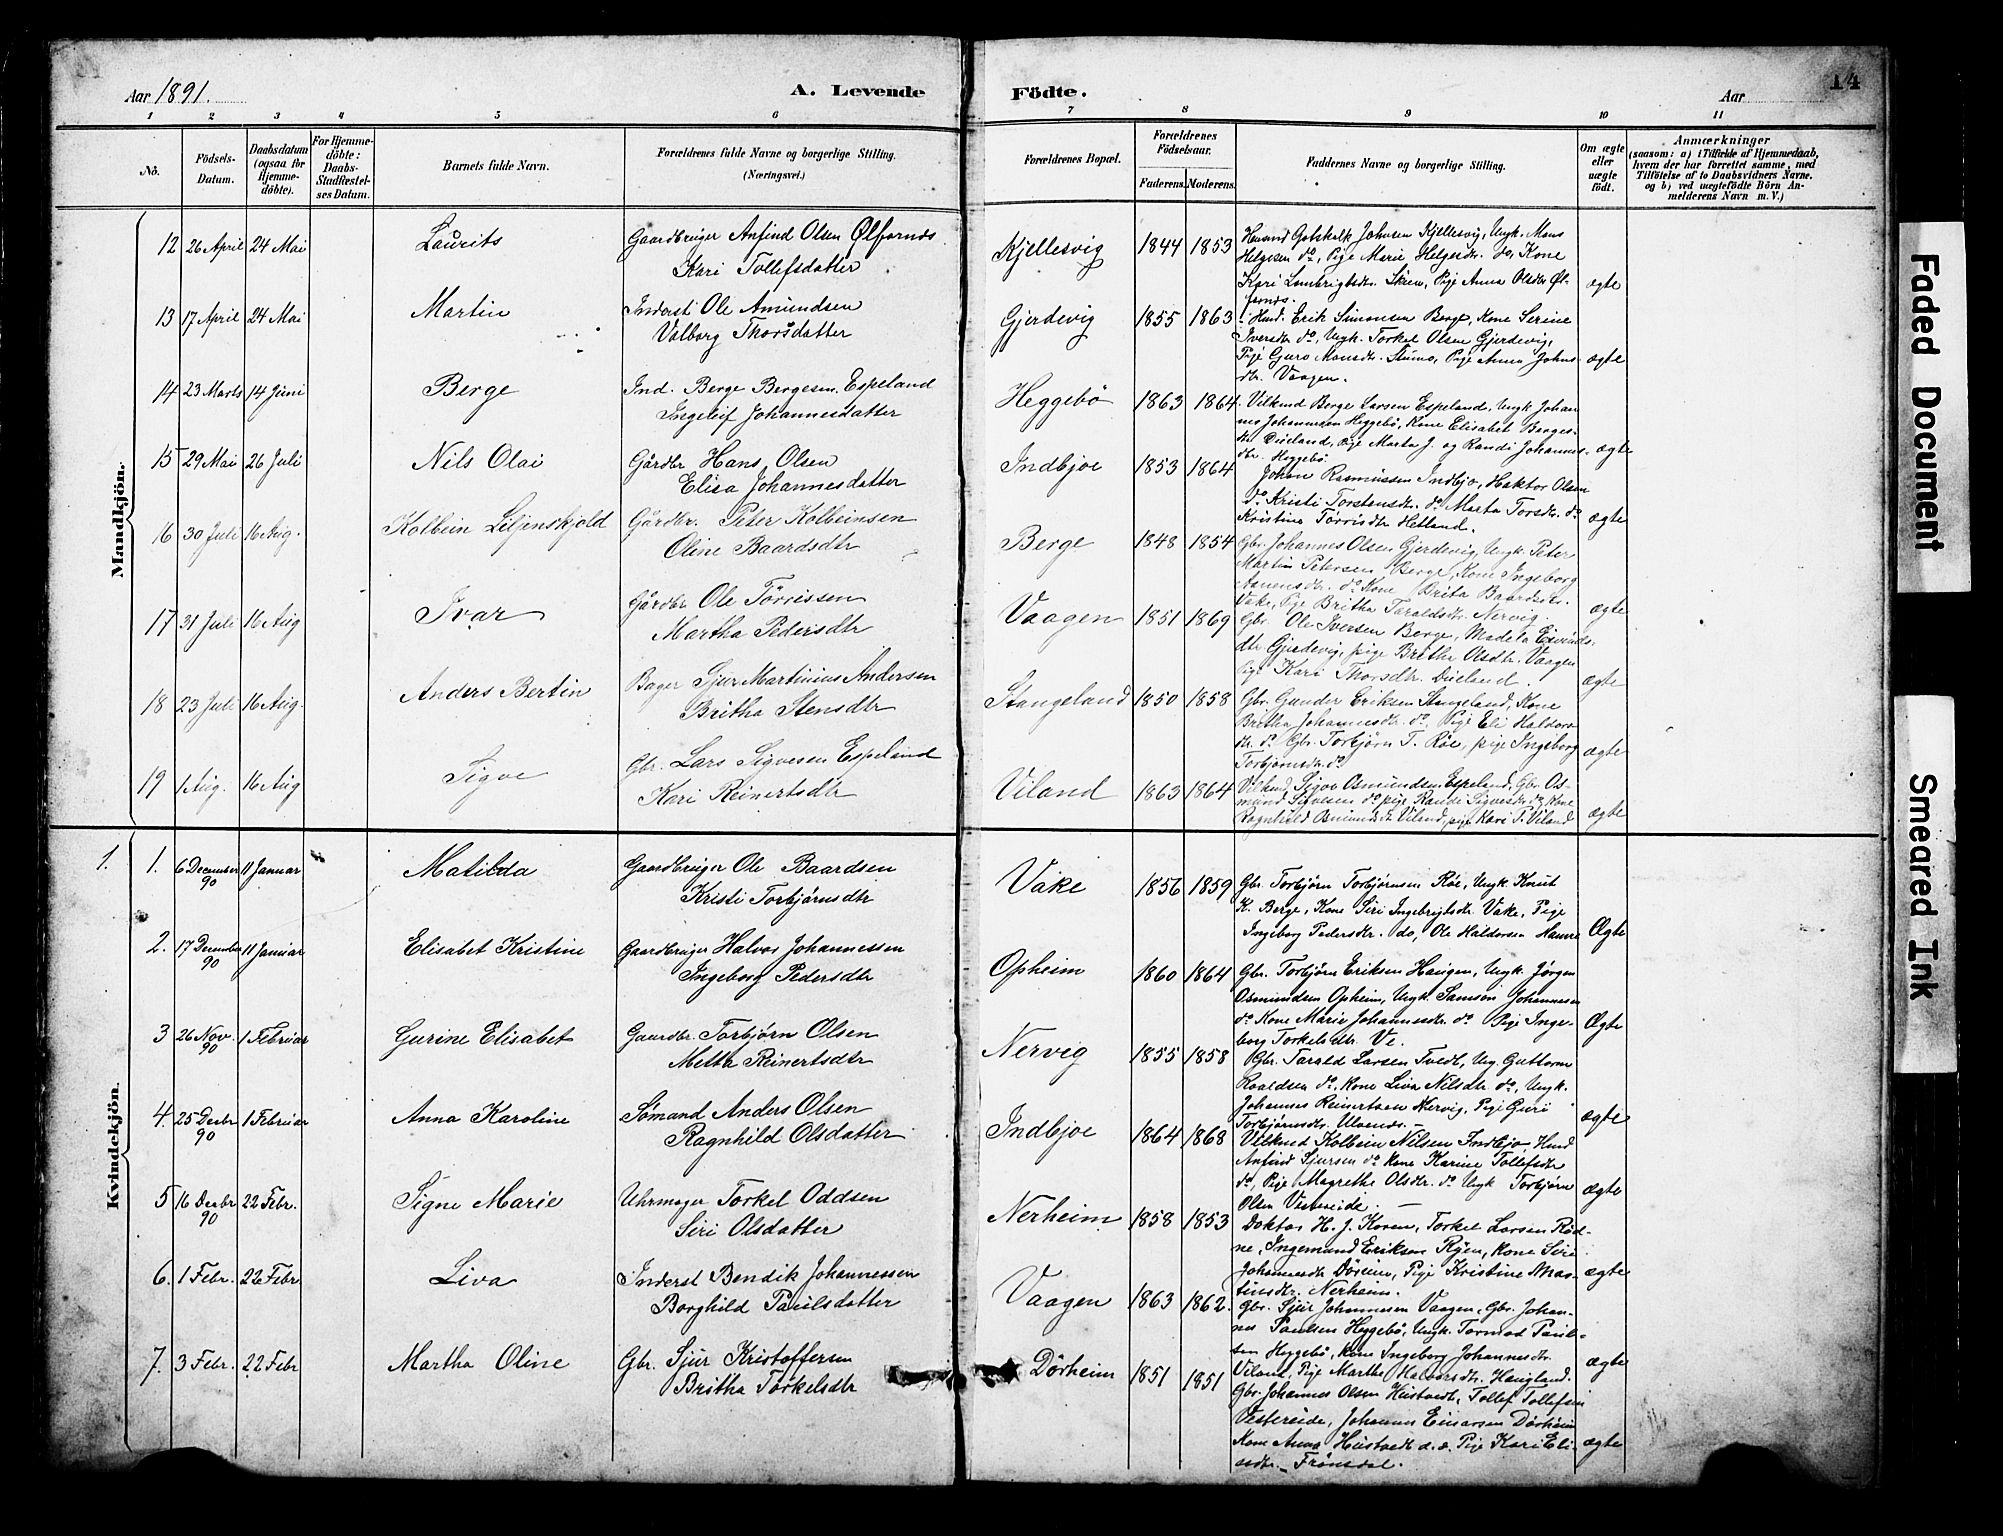 Aar 1891.
A. Levende Födte.
Aar
14
1 2 3 4 5 6 7 8 9 10 11
No.
Födsels-Datum.
Daabsdatum (ogsaa for Hjemme-döbte).
For Hjemme-döbte: Daabs-Stadfæstel-ses Datum.
Barnets fulde Navn.
Forældrenes fulde Navne og borgerlige Stilling. (Næringsvei.)
Forældrenes Bopæl.
Forældrenes Födselsaar.
Faderens. Moderens.
Faddernes Navne og borgerlige Stilling.
Om ægte eller uægte födt.
Anmærkninger
(saasom: a) i Tilfælde af Hjemmedaab, hvem der har forrettet samme, med Tilföielse af to Daabsvidners Navne. og b) ved uægtefödte Börn An-melderens Navn m. V.)
Mandkjön.
12 26 April 24 Mai Laurits Gaardbruger Anfind Olsen Ølfarnæs
Kari Tollefsdatter
Kjellesvig 1844 1853 Husmd Gotskalk Johnsen Kjellesvig, Ungk. Mons
Helgesen do, Pige Marie Helgesdr. do, Kone
Kari Lambrigtsdr. Skeen, Pige Anna Olsdtr Øl-
farnæs. ægte
13 17 April 24 Mai Martin Inderst Ole Amundsen
Valborg Thorsdatter
Gjerdevig 1855 1863 Husd. Erik Simonsen Berge, Kone Serine
Iversdtr do, Ungk. Torkel Olsen Gjerdevig,
Pige Guro Monsdtr. Stumo, Pige Anna Johns-
dtr. Vaagen. ægte
14 23 Marts 14 Juni Berge Ind. Berge Bergesen Espeland
Ingeleif Johannesdatter
Heggebö 1863 1864 Vilkmd Berge Larsen Espeland, Ungk Johan
nes Johannesen Heggebö, Kone Elisabet Berges-
dtr Dueland, Pige Marta J. og Randi Johannes-
dtr. Heggebö ægte
15 29 Mai 26 Juli Nils Olai Gårdbr Hans Olsen
Elisa Johannesdatter
Indbjoe 1853 1864 Johan Rasmussen Indbjo, Haktor Olsen
do Kristi Torstensdtr. do Marta Torsdtr. do
Kristina Törrisdtr Hetland. ægte
16 30 Juli 16 Aug. Kolbein Liljenskjold Gårdbr. Peter Kolbeinsen
Oline Baardsdtr
Berge 1848 1854 Gbr. Johannes Olsen Gjerdevig, Ungk. Peter
Martin Petersen Berge, Kone Ingeborg
do Kone Brita Baardsdtr.
Vake, Pige Britha Taraldsdtr. Nervig. ægte
17 31 Juli 16 Aug Ivar Gårdbr Ole Törrissen
Martha Pedersdtr
Vaagen 1851 1869 Gbr. Ole Iversen Berge, Madela Eivinds-
dtr Gjerdevig, pige Britha Olsdtr. Vaagen
Pige Kari Thorsdtr. Dueland. ægte
18 23 Juli 16 Aug. Anders Bertin Bager Sjur Martinius Andersen
Britha Stensdtr
Stangeland 1850 1858 Gbr. Gunder Eriksen Stangeland, Kone
Britha Johannesdtr. do, Pige Eli Haldors
dtr. do Gbr. Torbjørn T. Röe, pige Ingeborg
Torbjørnsdtr. do ægte
19 1 Aug. 16 Aug Sigve Gbr. Lars Sigvesen Espeland
Kari Reinertsdtr
Viland 1863 1864 Vilkmd. Sigve Osmundsen Espeland, Gbr. Os-
mund Sigvesen do, pige Randi Sigvesdtr do, Kone
Ragnhild Osmundsdtr Viland, pige Kari T. Viland ægte
Kvindekjön.
1. 1. 6 December 90 11 Januar Matilda Gaardbruger Ole Baardsen
Kristi Torbjørnsdtr
Vake 1856 1859 Gbr Torbjørn Torbjørnsen Röe, Ungk. Knut
K. Berge, Kone Siri Ingebrigtsdtr Vake, Pige
Ingeborg Pedersdtr. do, Ole Haldorsen Hamre Ægte
2. 17 December 90 11 Januar Elisabet Kristine Gaardbruger Halvor Johannessen
Ingeborg Pedersdtr
Opheim 1860 1864 Gbr. Torbjørn Eriksen Haugen, Ungk. Jørgen
Osmundsen Opheim, Ungk. Samson Johannesen
do Kone Marie Johannesdtr. do Pige Inge-
borg Torkelsdtr. Ve. Ægte
3 26 Nov. 90 1 Februar Gurine Elisabet Gaardbr. Torbjørn Olsen
Metta Reinertsdtr
Nervig 1855 1858 Gbr. Tarald Larsen Tvedt, Ung. Guttorm
Roaldsen do, Kone Liva Nilsdtr do, Ungk.
Johannes Reinertsen Nervig, Pige Guri
Torbjørnsdtr. Ulvenæs. ægte
4. 25 Decbr 90 1 Februar Anna Karoline Sømand Anders Olsen
Ragnhild Olsdatter
Indbjoe 1864 1868 Vilkmd Kolbein Nilsen Indbjo, Husd
Anfind Sjursen do Kone Karine Tollefsdtr
do, Pige Magrethe Olsdtr. do Ungk Torbjørn
Olsen Vestereide. ægte
5 16 Decbr 90 22 Febr. Signe Marie Uhrmager Torkel Oddsen
Siri Olsdatter
Nerheim 1858 1853 Doktor H. J. Koren, Torkel Larsen Rød-
ne, Ingemund Eriksen Rygen, Kone Siri
Johannesdtr Döreim, Pige Kristine Mar-
tinsdtr. Nerheim. ægte
6. 1 Febr. 22 Febr Liva Inderst Bendik Johannessen
Borghild Paulsdatter
Vaagen 1863 1862. Gbr. Sjur Johannesen Vaagen, Gbr. Johan-
nes Paulsen Heggebö, Ungk. Tormod Paul-
sen Heggebö, Kone Ingeborg Johannesdtr.
Viland, Pige Marthe Halvorsdtr. Haugland. ægte
7. 3 Febr. 22 Febr Martha Oline Gbr. Sjur Kristoffersen
Britha Torkelsdtr
Dörheim 1851 1851 Gbr. Johannes Olsen Hustvedt, Tollef Tollefsen
Vestereide, Johannes Einarsen Dörheim
Kone Anna Hustvedt d. o. Pige Kari Eli-
asdtr. Frönsdal. ægte
Faded Document
Smeared Ink